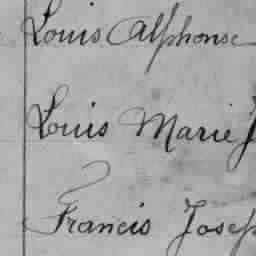 Louis Alphonse
Louis Marie J
Francis Josep